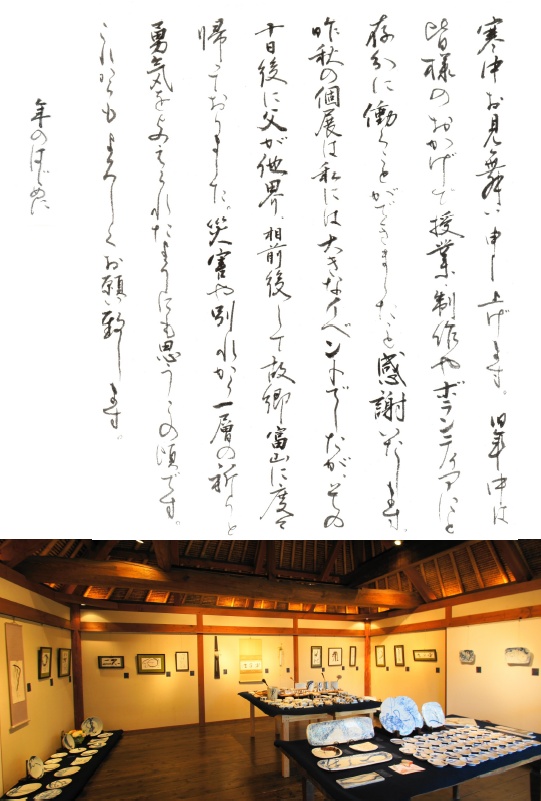 寒中お見舞い申し上げます。旧年中は
皆様のおかげで授業、制作やボランティアにと
存分に働くことができましたこと感謝いたします。
昨秋の個展は私には大きなイベントでしたが、その
十日後に父が他界、相前後して故郷富山に度々
帰っておりました。災害や別れから一層の祈りと
勇気を与えられたようにも思うこの頃です。
これからもよろしくお願い致します。
年のはじめに